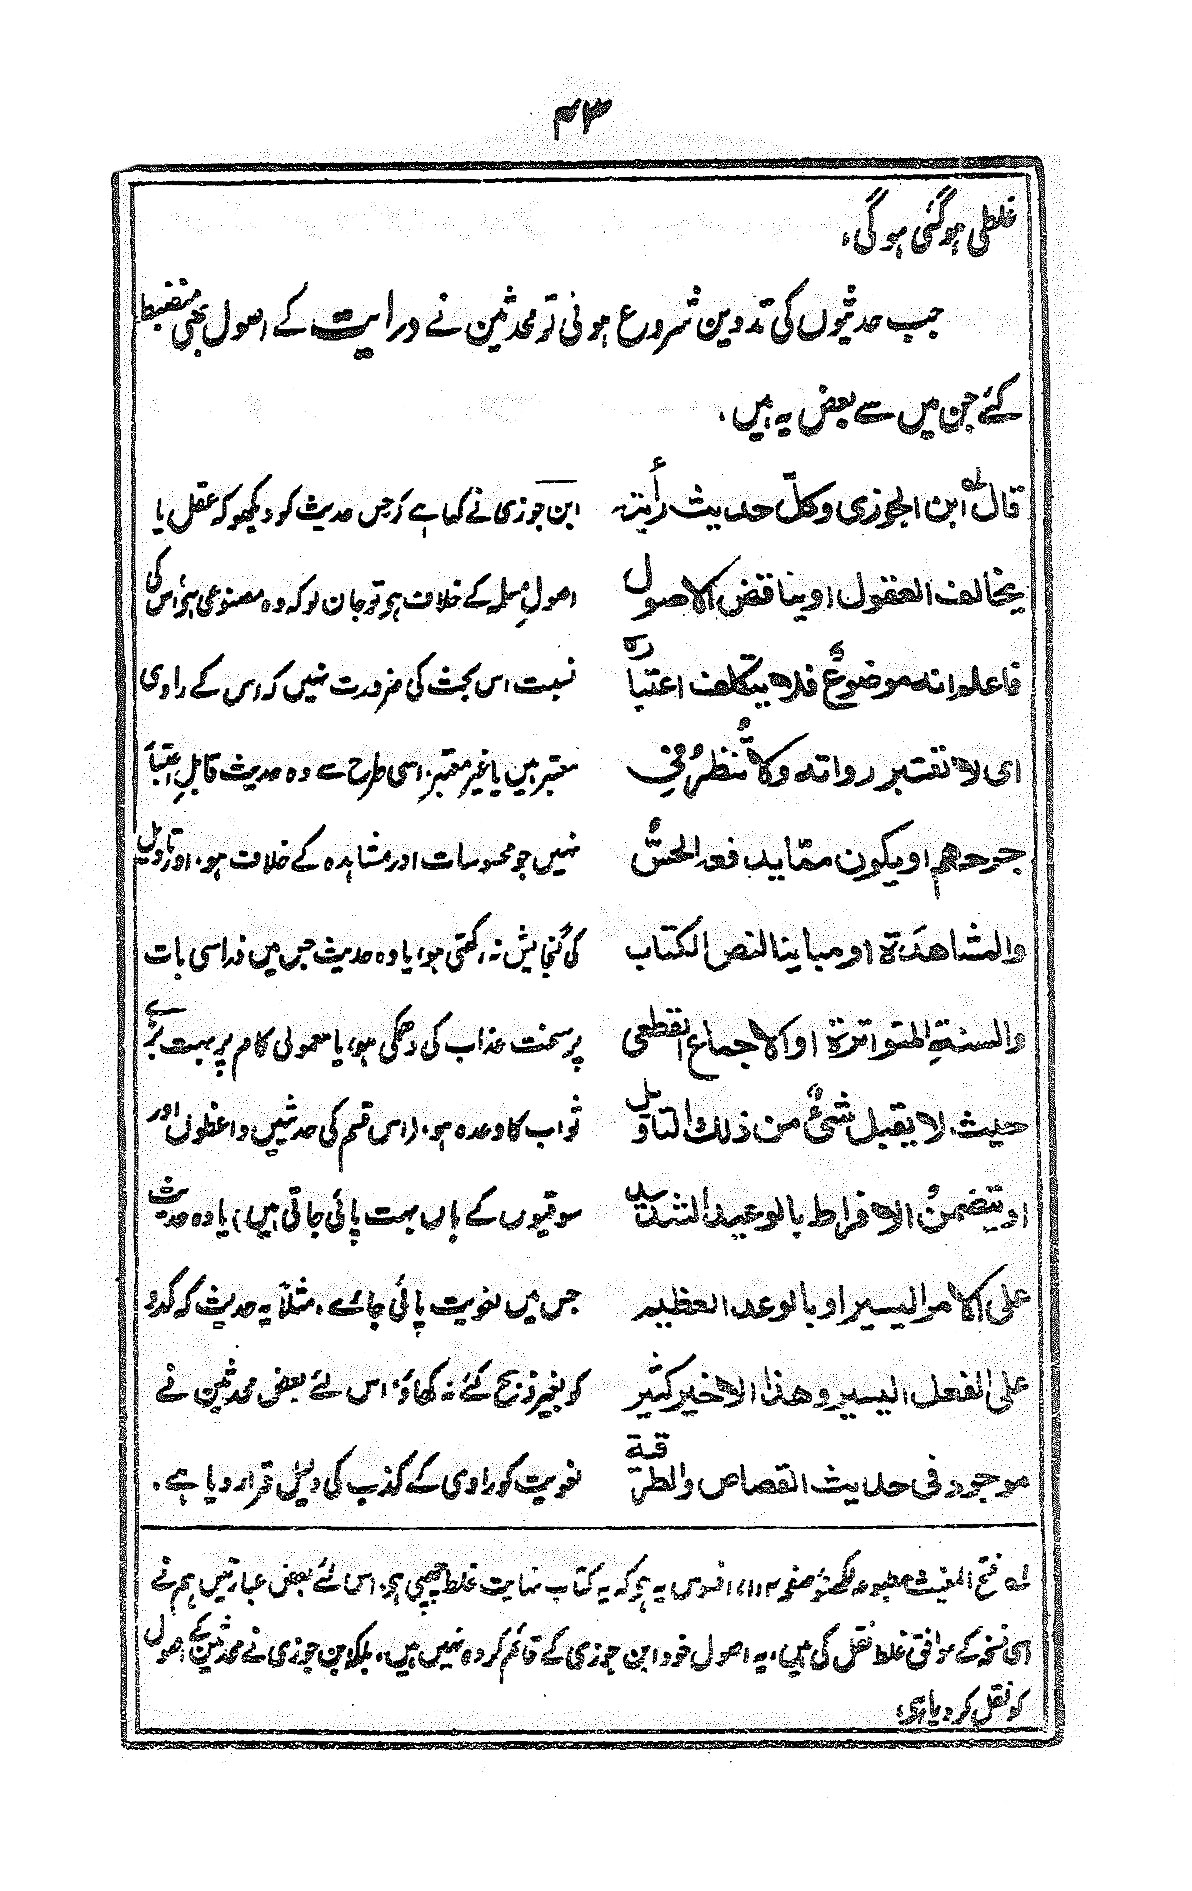 ۴۳
غلطی ہوگئی ہوگی،
جب حدیثوں کی تدوین شروع ہوئی تو محدثین نے درایت کے اصول بھی منضبط
کئے جن میں سے بعض یہ ہیں،
قال ابن الجوزی وکلّ حدیث رأیتہ
یخالف العقول اویناقض الاصول
فاعلم انہ موضوع فلا یتکلف اعتبارہ
ای لا تعتبر رواتہ ولا تنظر فی
جرحھم اویکون ممّا یدفعہ الحسّ
والمشاھدۃ اومباینا لنص الکتاب
والسنۃ المتواترۃ اوالاجماع القطعی
حیث لا یقبل شیٔ من ذلک التاویل
اویتضمن الافراط بالوعید الشدید
علی الامر الیسیر اوبالوعد العظیم
علی الفعل الیسیر وھذا الاخیر کثیر
موجود فی حدیث القصاص والطرقیۃ
ابن جوزی نے کہا ہے کہ جس حدیث کو دیکھو کہ عقل یا
اصول مسلمہ کے خلاف ہو تو جان لو کہ وہ مصنوعی ہو اس کی
نسبت اس بحث کی ضرورت نہیں کہ اس کے راوی
معتبر ہیں یا غیر معتبر، اسی طرح سے وہ حدیث قابلِ اعتبار
نہیں جو محسوسات اور مشاہدہ کے خلاف ہو، اور تاویل
کی گنجایش نہ رکھتی ہو، یا وہ حدیث جس میں ذراسی بات
پر سخت عذاب کی دھمکی ہو، یا معمولی کام پر بہت بڑے
ثواب کا وعدہ ہو، (اس قسم کی حدیثیں واعظوں اور
سوقیوں کے ہاں بہت پائی جاتی ہیں) یا وہ حدیث
جس میں لغویت پائی جائے، مثلاً یہ حدیث کہ کدو
کو بغیر ذبح کئے نہ کھاؤ، اس لئے بعض محدثین نے
لغویت کو راوی کے کذب کی دلیل قرار دیا ہے۔
لہ فتح المغیث مطبوعہ لکھنؤ صفحہ ۱۱۴، افسوس یہ ہو کہ یہ کتاب نہایت غلط چھپی ہو، اس لئے بعض عبارتیں ہم نے
اسی نسخہ کے موافق غلط نقل کی ہیں، یہ اصول خود ابن جوزی کے قائم کردہ نہیں ہیں، بلکہ ابن جوزی نے محدثین کے اصول
کو نقل کر دیا ہی،